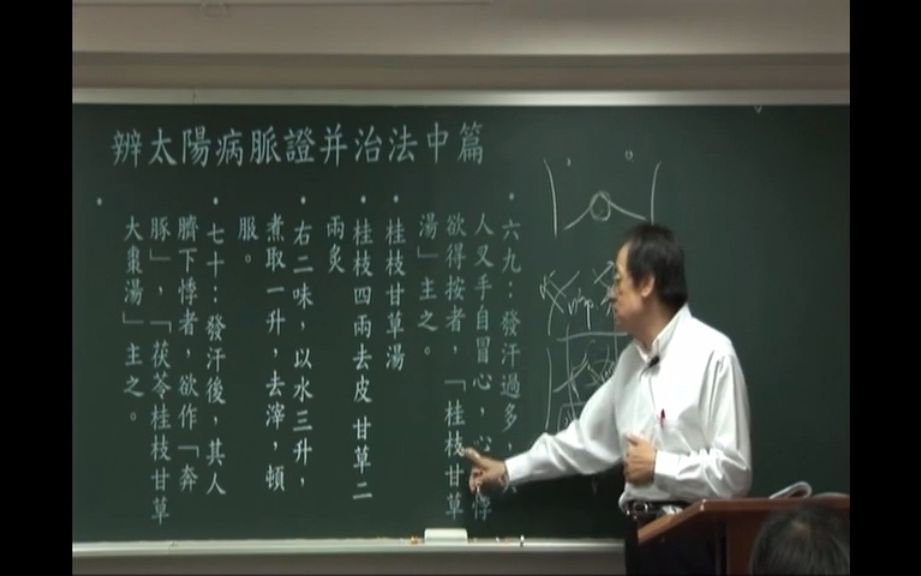 辨太陽病脈證并治法中篇
• 六九：發汗過多，
人叉手自冒心，心悸
欲得按者，「桂枝甘草
湯」主之。
• 桂枝甘草湯
• 桂枝四兩去皮 甘草二
兩炙
• 右二味，以水三升，
煮取一升，去滓，頓
服。
• 七十：發汗後，其人
臍下悸者，欲作「奔
豚」，「茯苓桂枝甘草
大棗湯」主之。
•